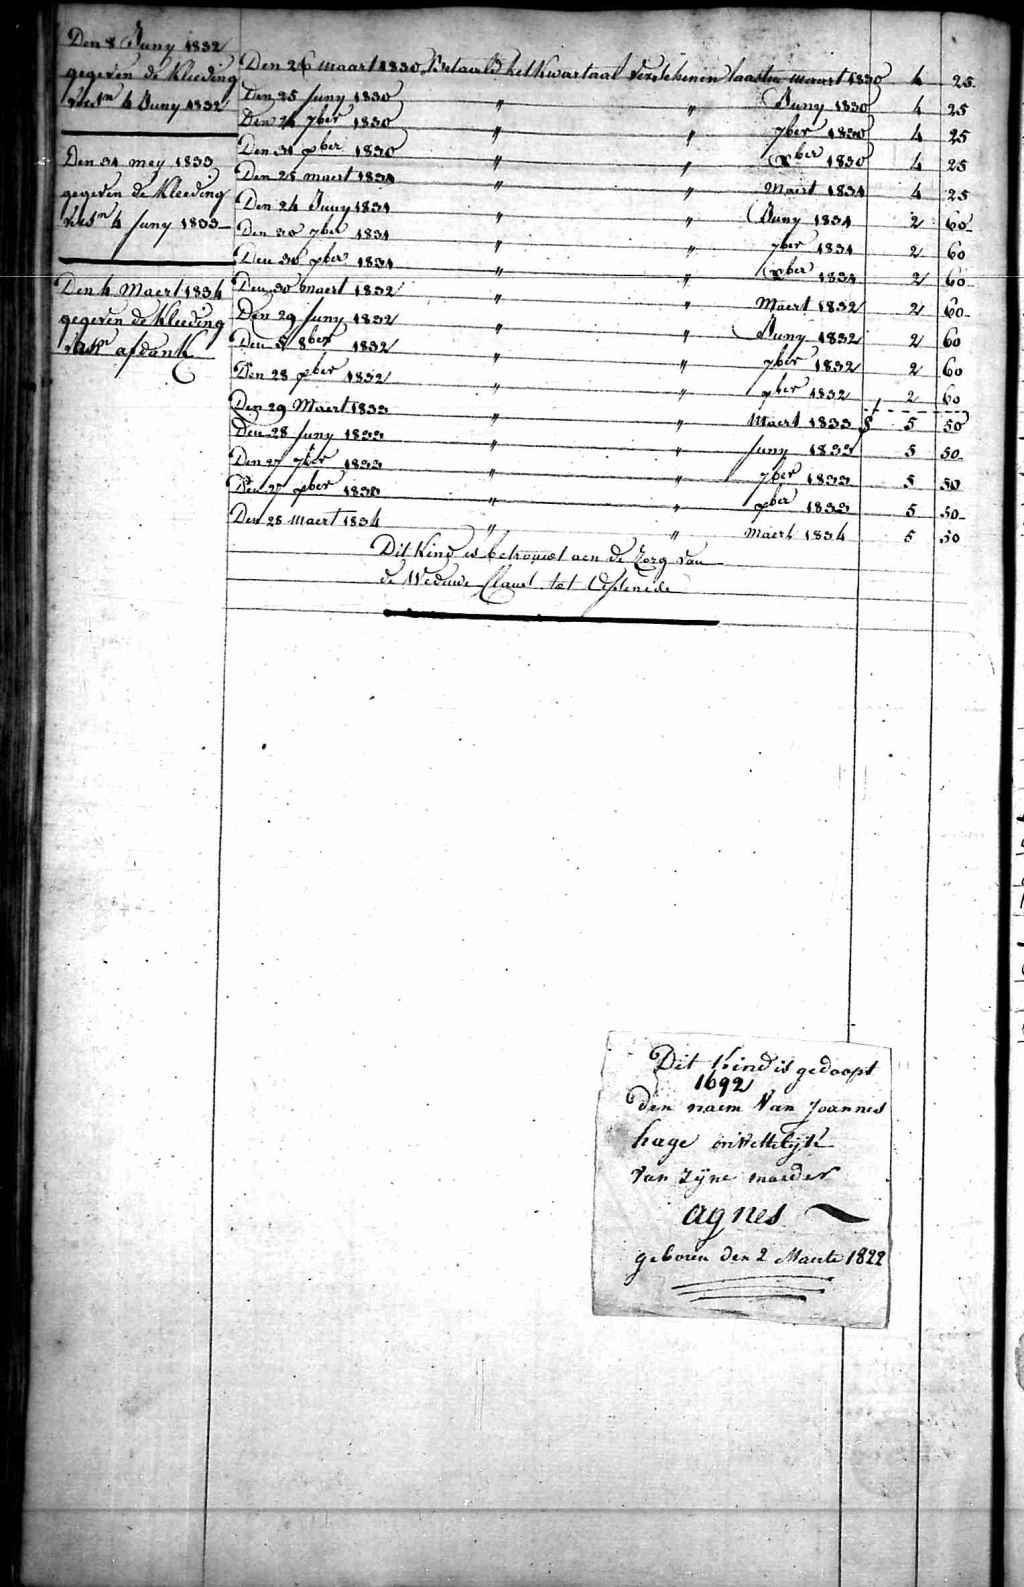 Den 8 Juny 1832
gegeven de kleeding
4 Juny 1832
Den 31 mey 1833
gegeven de kleeding
4 Juny 1833
Den 4 Maert 1834
gegeven de kleeding
afdank
Den 26 maart 1830 Betaald het kwartaal verschenen laasten maart 1830 4 25
Den 25 Juny 1830 " " Juny 1830 4 25
Den 24 7ber 1830 " " 7ber 1830 4 25
Den 31 xber 1830 " " xber 1830 4 25
Den 25 maert 1831 " " Maert 1831 4 25
Den 24 Juny 1831 " " Juny 1831 2 60
Den 30 7ber 1831 " " 7ber 1831 2 60
Den 30 xber 1831 " " xber 1831 2 60
Den 30 maert 1832 " " Maert 1832 2 60
Den 29 Juny 1832 " " Juny 1832 2 60
Den 5 8ber 1832 " " 7ber 1832 2 60
Den 28 xber 1832 " " xber 1832 2 60
Den 29 Maert 1833 " " Maert 1833 5 50
Den 28 Juny 1833 " " Juny 1833 5 50
Den 27 7ber 1833 " " 7ber 1833 5 50
Den 27 xber 1833 " " xber 1833 5 50
Den 28 maert 1834 " " Maert 1834 5 50
Dit Kind is betrouwt aen de Zorg van
de Weduwe tot
Dit kind is gedoopt
1692
den naem Van Joannes
hage onwettelijk
van zijne moeder
agnes
geboren den 2 Maerte 1822